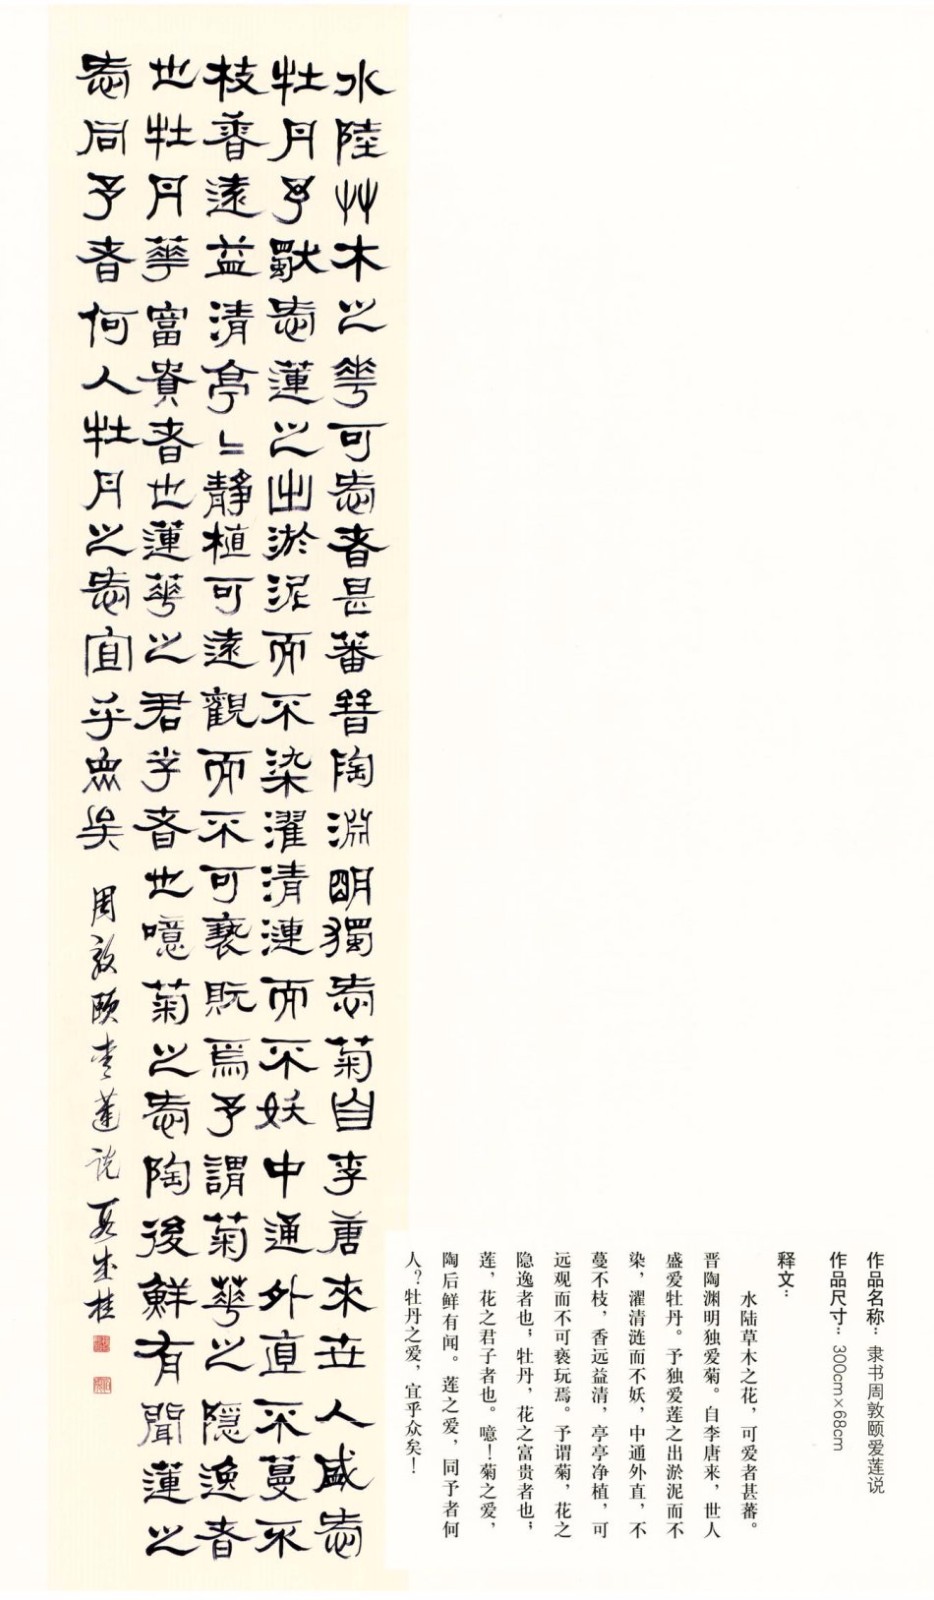 作品名称：隶书周敦颐爱莲说
作品尺寸：300cm×68cm
释文：
水陆草木之花，可爱者甚蕃。
晋陶渊明独爱菊。自李唐来，世人
盛爱牡丹。予独爱莲之出淤泥而不
染，濯清涟而不妖，中通外直，不
蔓不枝，香远益清，亭亭净植，可
远观而不可亵玩焉。予谓菊，花之
隐逸者也；牡丹，花之富贵者也；
莲，花之君子者也。噫！菊之爱，
陶后鲜有闻。莲之爱，同予者何
人？牡丹之爱，宜乎众矣！
水陸艸木之華可愛者甚蕃晉陶淵明獨愛菊自李唐來世人盛愛
牡丹予獨愛蓮之出淤泥而不染濯清漣而不妖中通外直不蔓不
枝香遠益清亭〻靜植可遠觀而不可褻翫焉予謂菊華之隱逸者
也牡丹華富貴者也蓮華之君子者也噫菊之愛陶後鮮有聞蓮之
愛同予者何人牡丹之愛宜乎衆矣
周敦頤愛蓮說